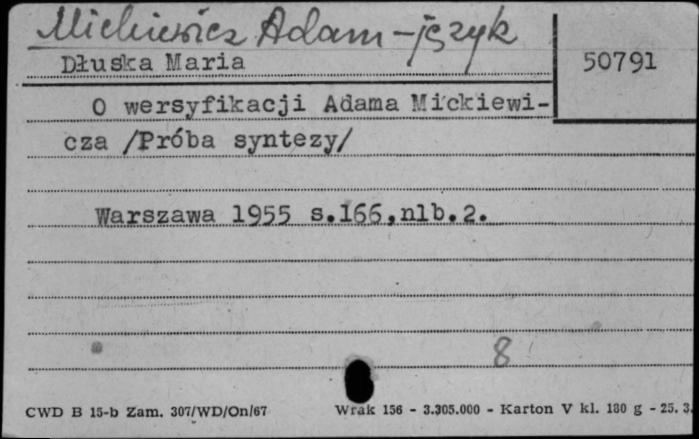 Mickiewicz Adam - język
Dłuska Maria
50791
O wersyfikacji Adama Mickiewi-
cza /Próba syntezy/
Warszawa 1955 s.166,nlb.2.
8
CWD B 15-b Zam. 307/WD/On/67 Wrak 156 - 3.305.000 - Karton V kl. 180 g - 25. 3.